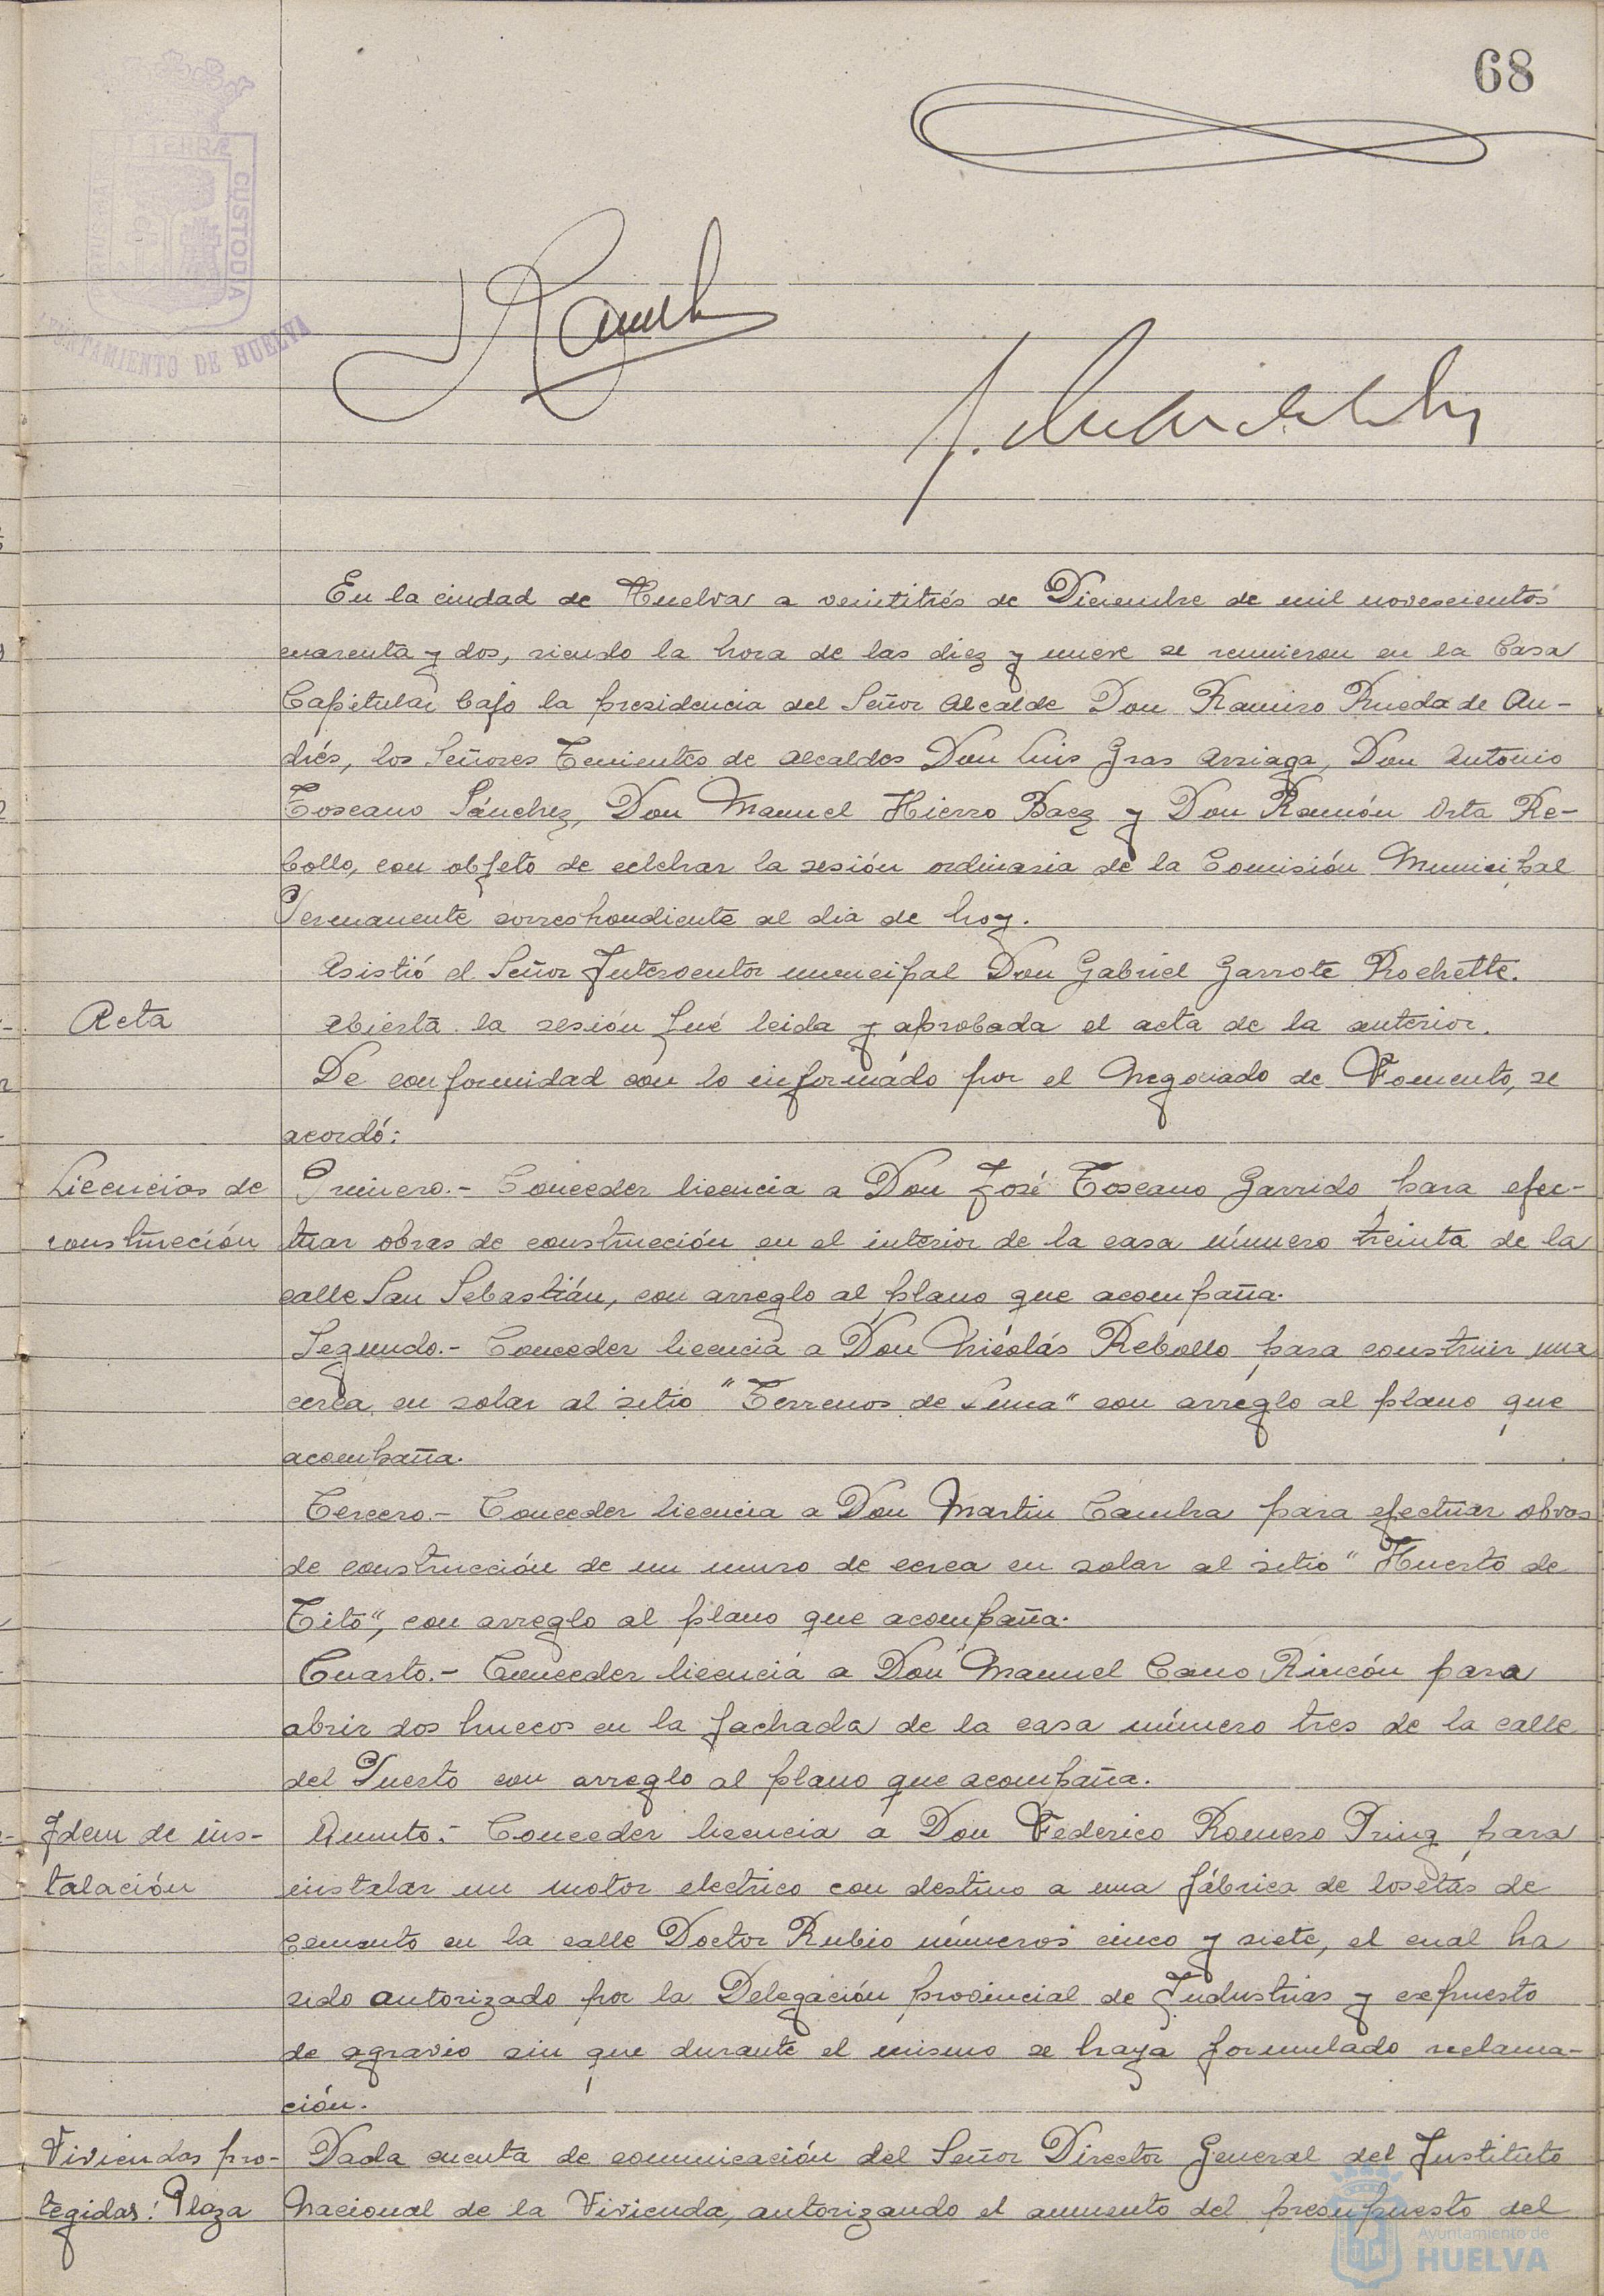 68
TERRÆ
CUSTODIA
DE HUELVA
En la ciudad de Huelva a veintitrés de Diciembre de mil novescientos
cuarenta y dos, siendo la hora de las diez y nueve se reunieron en la Casa
Capitular bajo la presidencia del Señor Alcalde Don Ramiro Rueda de An-
drés, los Señores Tenientes de Alcaldes Don Luis Gras Arriaga, Don Antonio
Toscano Sánchez, Don Manuel Hierro Baez y Don Ramón Orta Re-
bollo, con objeto de celebrar la sesión ordinaria de la Comisión Municipal
Permanente correspondiente al dia de hoy.
Asistió el Señor Interventor municipal Don Gabriel Garrote Rochette.
Acta
Abierta la sesión fué leida y aprobada el acta de la anterior.
De conformidad con lo informado por el Negociado de Fomento, se
acordó:
Licencias de
construcción
Primero.- Conceder licencia a Don José Toscano Garrido para efec-
tuar obras de construcción en el interior de la casa número treinta de la
calle San Sebastián, con arreglo al plano que acompaña.
Segundo.- Conceder licencia a Don Nicolás Rebollo para construir una
cerca en solar al sitio "Terrenos de" con arreglo al plano que
acompaña.
Tercero.- Conceder licencia a Don Martin Cambra para efectuar obras
de construcción de un muro de cerca en solar al sitio "Huerto de
Tito", con arreglo al plano que acompaña.
Cuarto.- Conceder licencia a Don Manuel Cano Rincón para
abrir dos huecos en la fachada de la casa número tres de la calle
del Puerto con arreglo al plano que acompaña.
Idem de ins-
talación
Quinto.- Conceder licencia a Don Federico Romero Pring para
instalar un motor electrico con destino a una fábrica de losetas de
cemento en la calle Doctor Rubio números cinco y siete, el cual ha
sido autorizado por la Delegación provincial de Industrias y expuesto
de agravio sin que durante el mismo se haya formulado reclama-
ción.
Viviendas pro-
tegidas: Plaza
Dada cuenta de comunicación del Señor Director General del Instituto
Nacional de la Vivienda, autorizando el aumento del presupuesto del
Ayuntamiento de
HUELVA